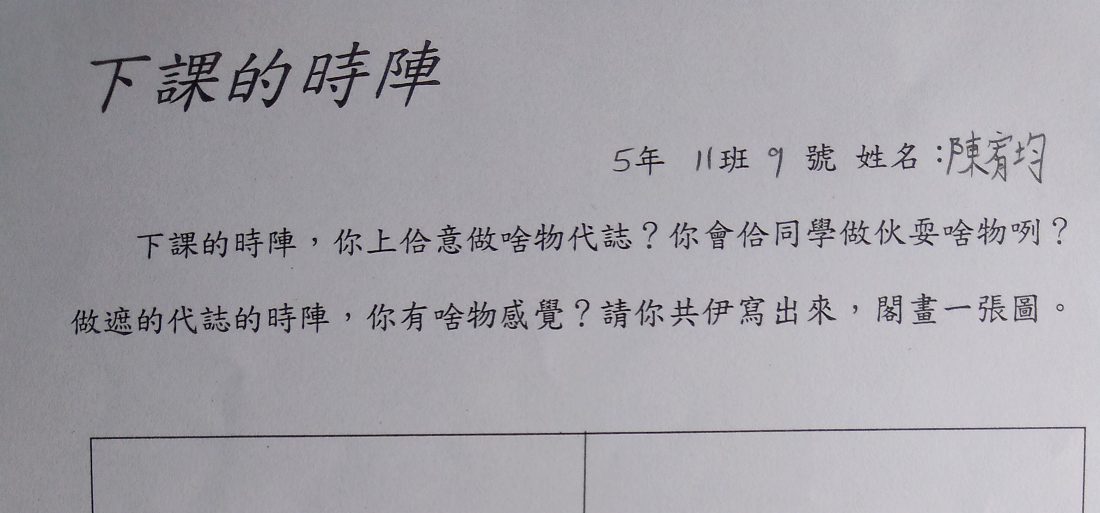 下課的時陣
5年 11班 9號 姓名:陳宥均
下課的時陣,你上佮意做啥物代誌?你會佮同學做伙耍啥物咧?
做遮的代誌的時陣,你有啥物感覺?請你共伊寫出來,閣畫一張圖。